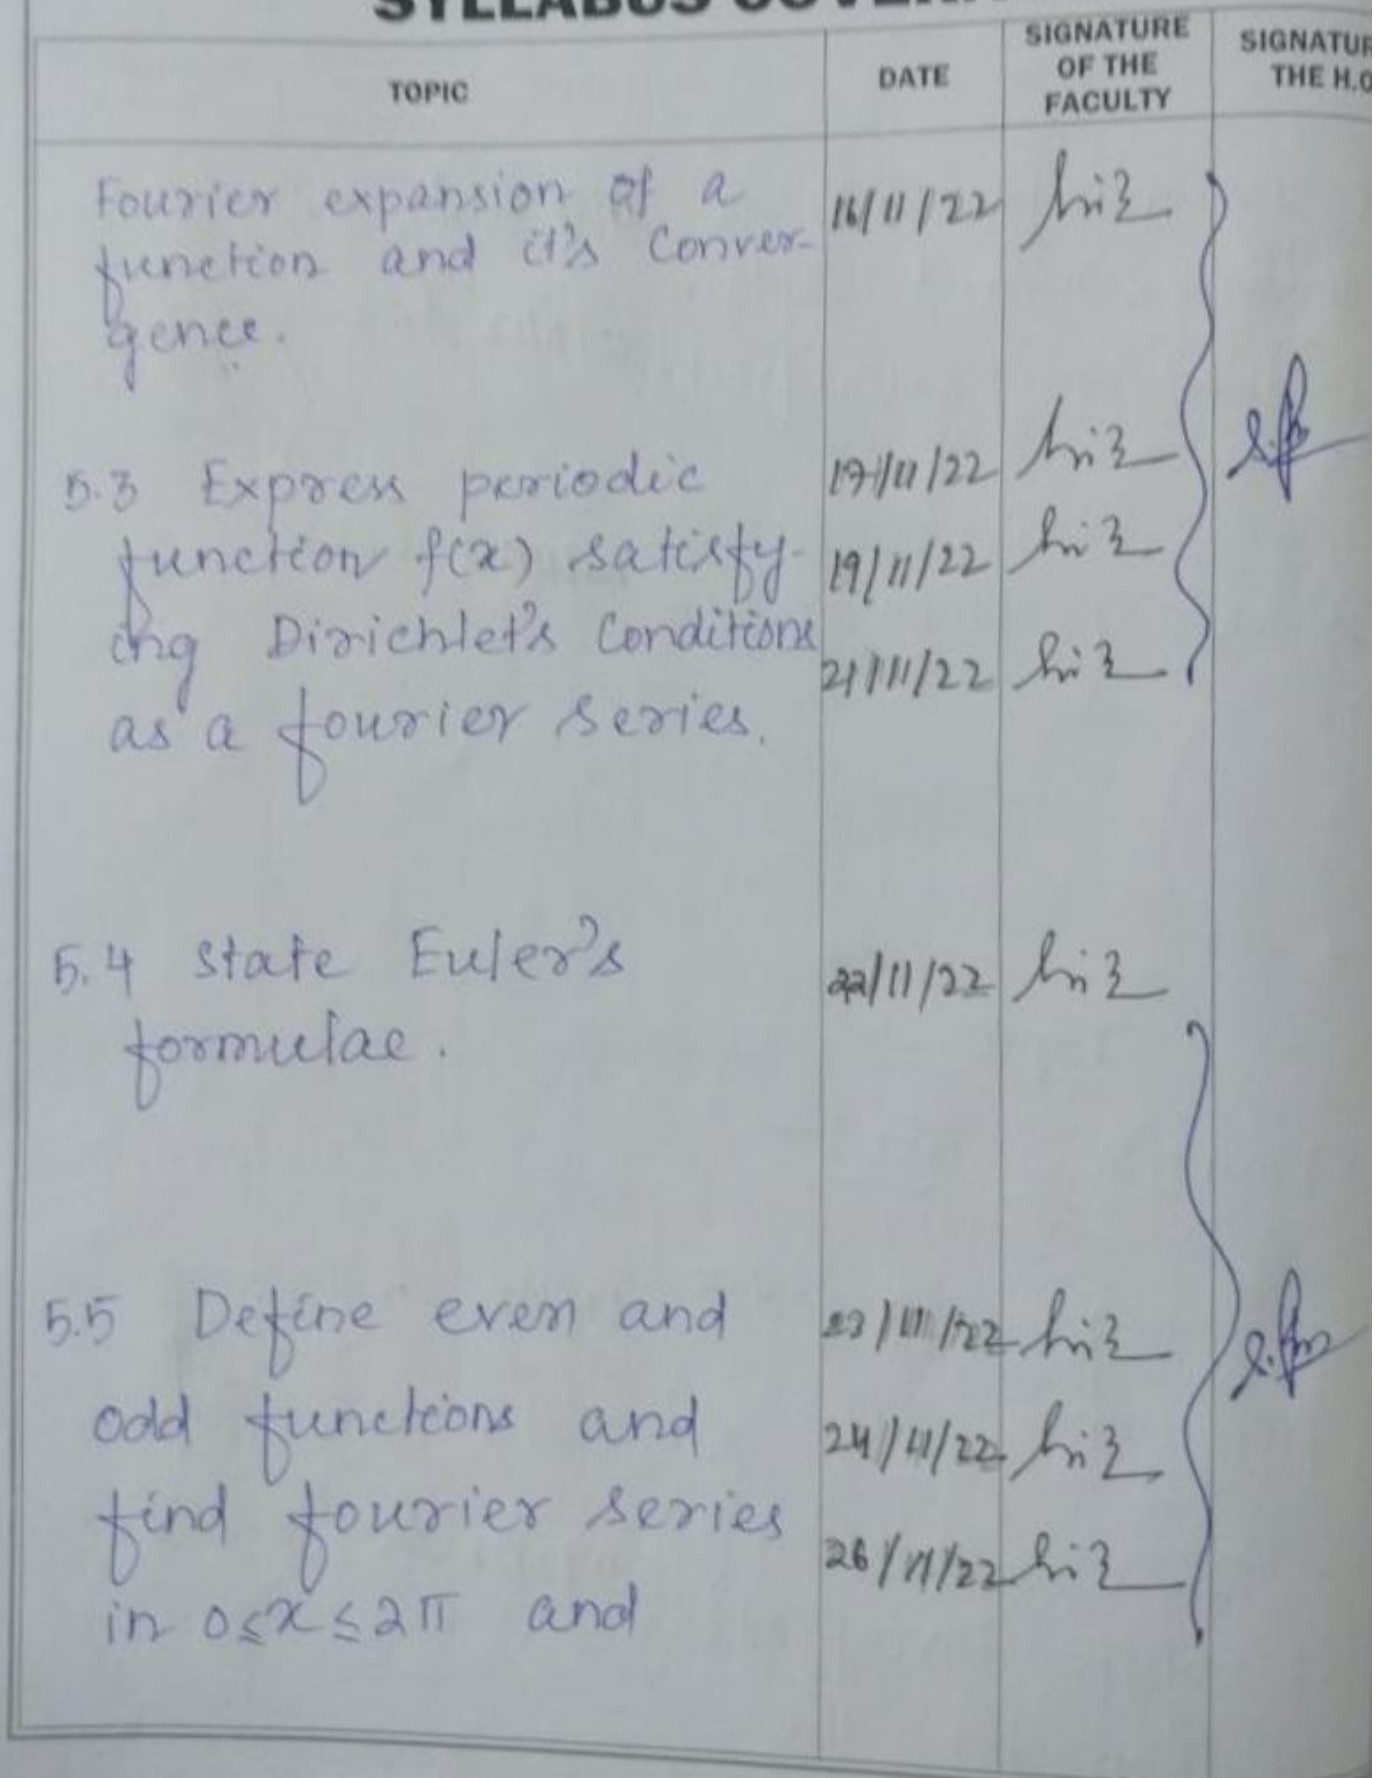 SYLLABUS COVERA
TOPIC
DATE
SIGNATURE
OF THE
FACULTY
SIGNATUR
THE H.O
Fourier expansion of a
function and it's Conver-
gence.
16/11/22
5.3 Express periodic
function f(x) satisfy-
ing Dirichlet's Conditions
as a fourier series.
17/11/22
19/11/22
21/11/22
5.4 State Euler's
formulae.
22/11/22
5.5 Define even and
odd functions and
find fourier series
in 0≤x≤2π and
23/11/22
24/11/22
26/11/22